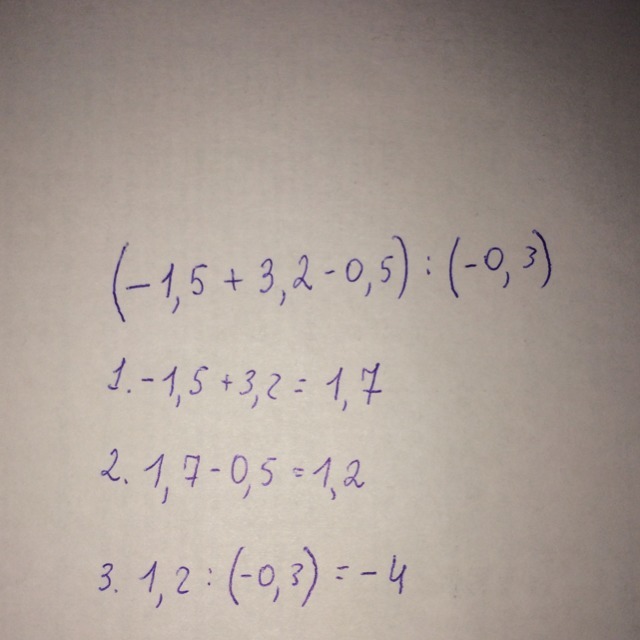 (-1,5 + 3,2 - 0,5) : (-0,3)
1. -1,5 + 3,2 = 1,7
2. 1,7 - 0,5 = 1,2
3. 1,2 : (-0,3) = -4